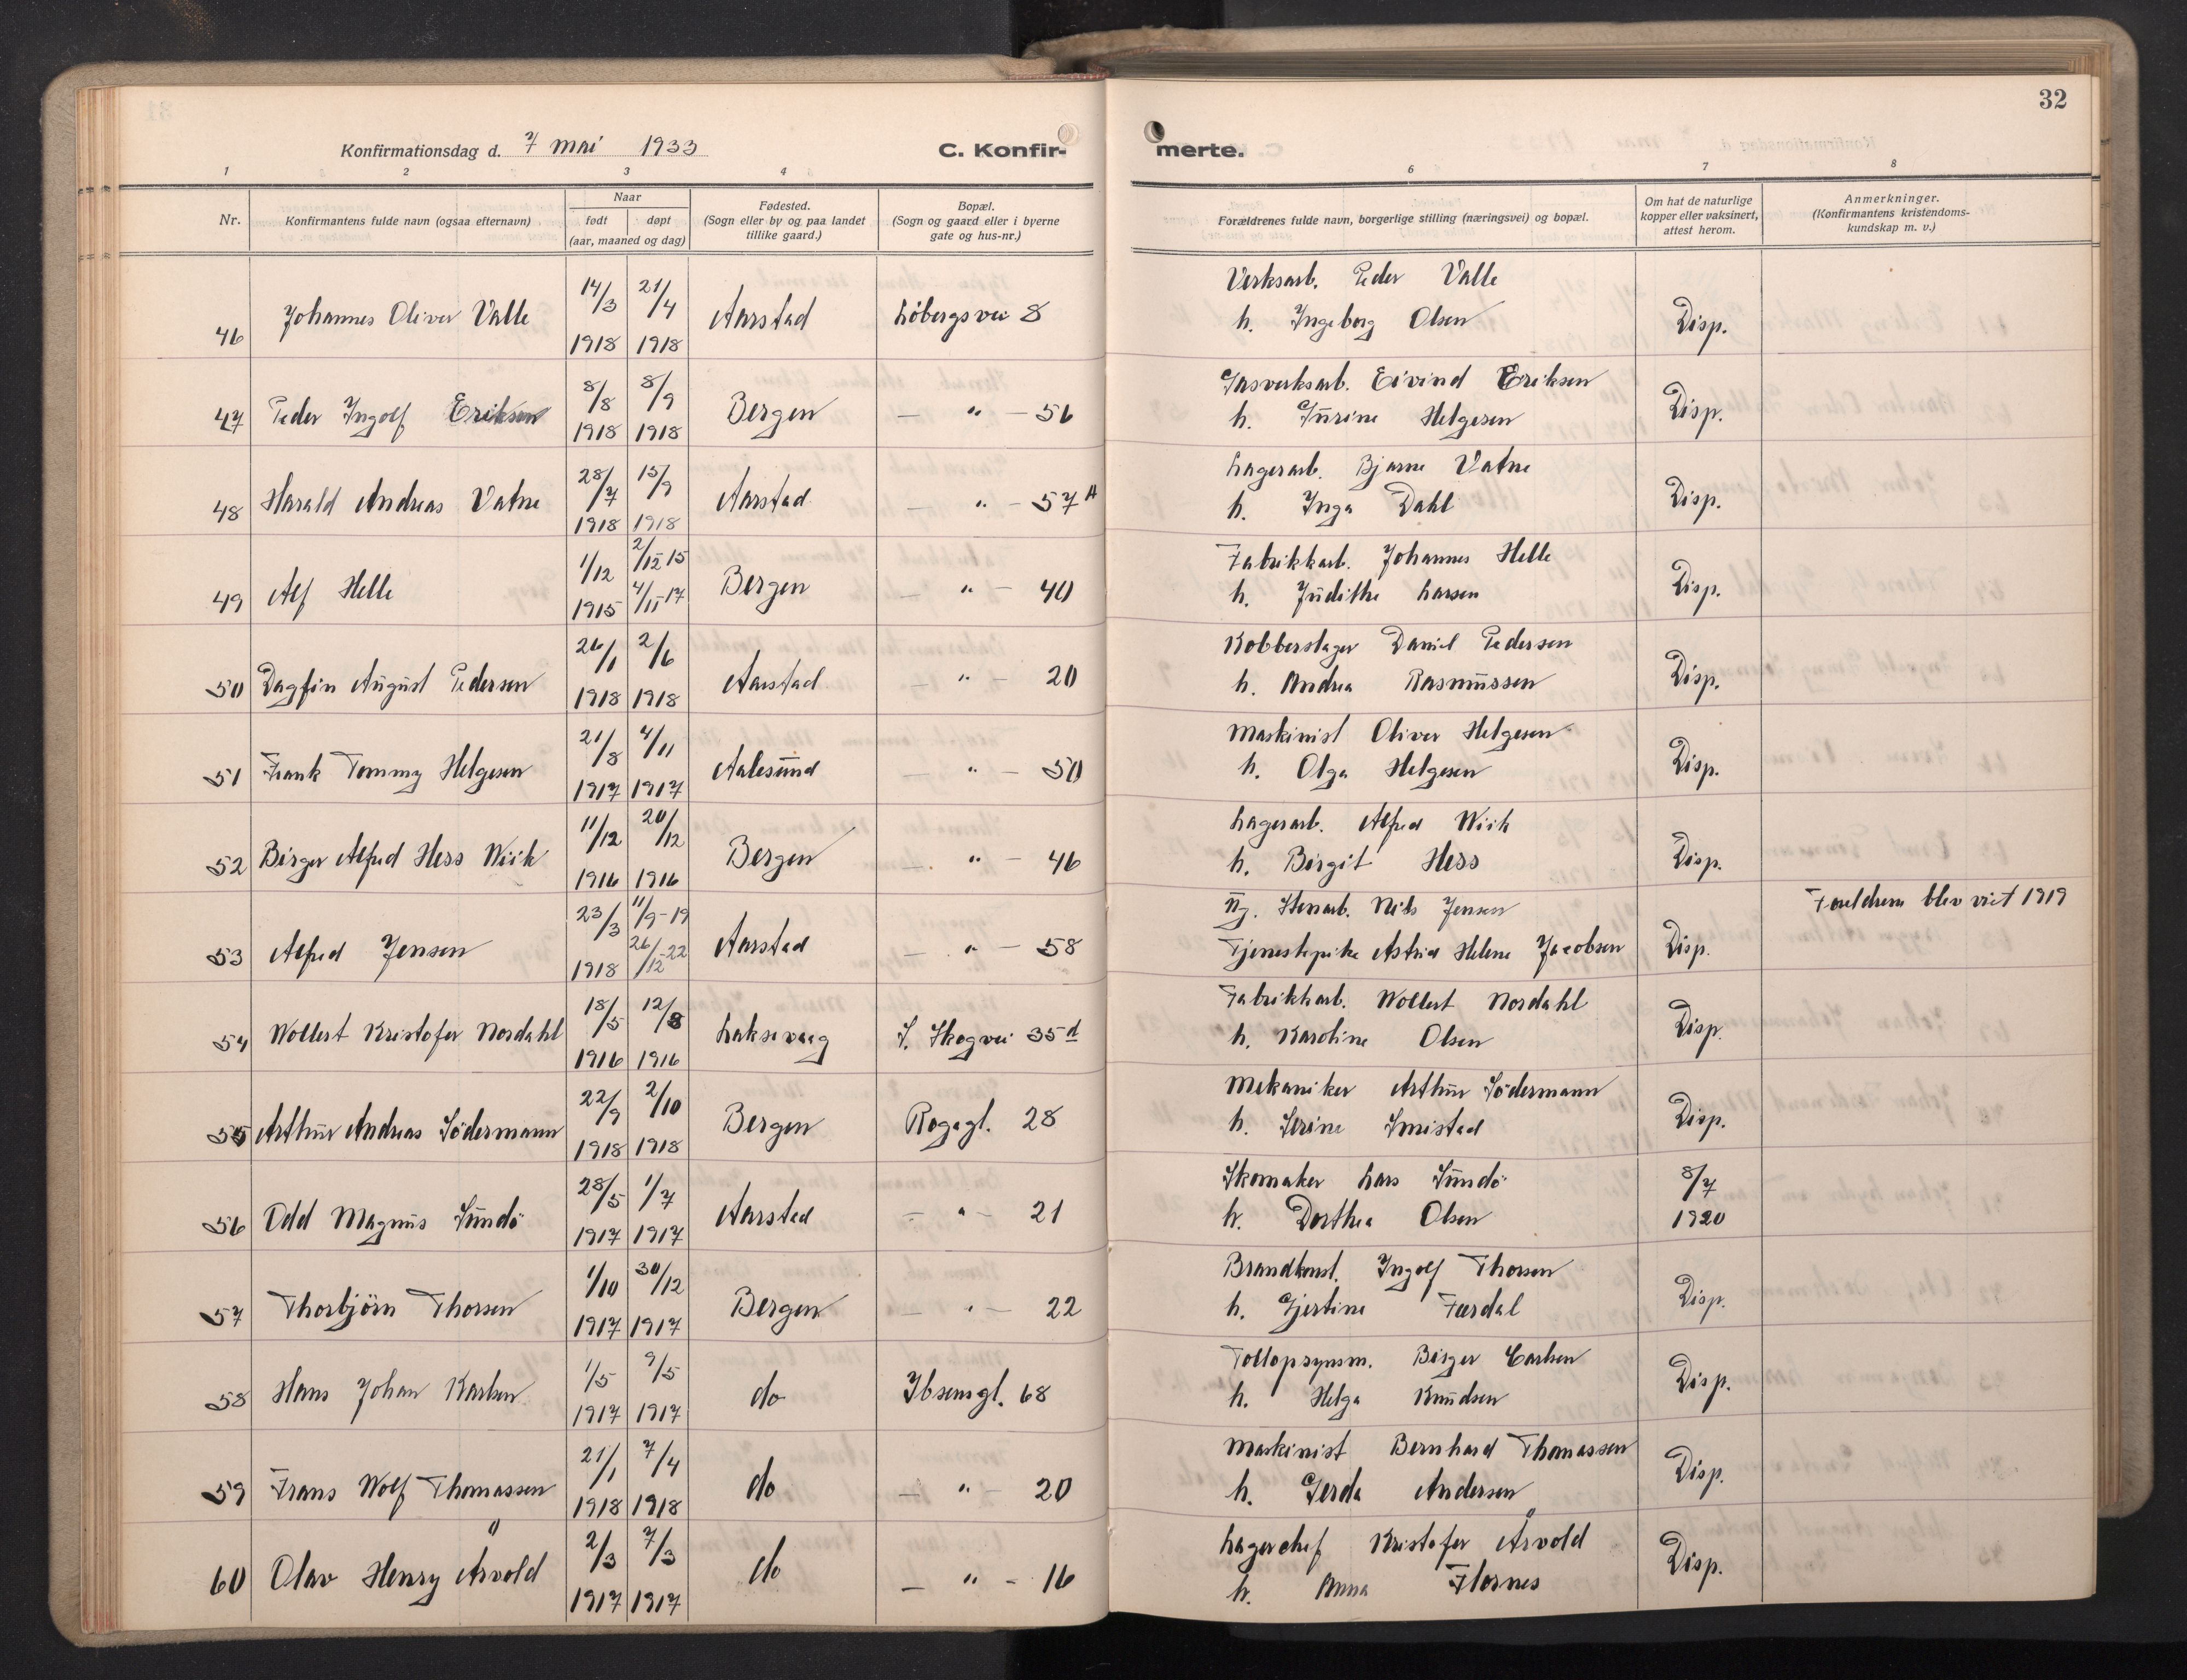 32
Konfirmationsdag d. 7 mai 1933
C. Konfir-
merte.
1 2 3 4 6 7 8
Nr.
Konfirmantens fulde navn (ogsaa efternavn)
Naar
født døpt
(aar, maaned og dag)
Fødested.
(Sogn eller by og paa landet
tillike gaard.)
Bopæl.
(Sogn og gaard eller i byerne
gate og hus-nr.)
Forældrenes fulde navn, borgerlige stilling (næringsvei) og bopæl.
Om hat de naturlige
kopper eller vaksinert,
attest herom.
Anmerkninger.
(Konfirmantens kristendoms-
kundskap m. v.)
46 Johannes Oliver Valle 14/3 1918 21/4 1918 Aarstad Löbergsvei 8
Verksarb. Peder Valle
h. Ingeborg Olsen Disp.
47 Peder Ingolf Eriksen 8/8 1918 8/9 1918 Bergen — " — 56
Gasverksarb. Eivind Eriksen
h. Gurine Helgesen Disp.
48 Harald Andreas Vatne 28/7 1918 15/9 1918 Aarstad — " — 57 A
Lagerarb. Bjarne Vatne
h. Inga Dahl Disp.
49 Alf Helle 1/12 1915 2/12 15 4/11-17 Bergen — " — 40
Fabrikkarb. Johannes Helle
h. Judithe Larsen Disp.
50 Dagfin August Pedersen 26/1 1918 2/6 1918 Aarstad — " — 20
Kobberslager Daniel Pedersen
h. Andrea Rasmussen Disp.
51 Frank Tommy Helgesen 21/8 1917 4/11 1917 Aalesund — " — 50
Maskinist Oliver Helgesen
h. Olga Helgesen Disp.
52 Birger Alfred Hess Wiik 11/12 1916 20/12 1916 Bergen — " — 46
Lagerarb. Alfred Wiik
h. Birgit Hess Disp.
53 Alfred Jensen 23/3 1918 11/9-19 26/12-22 Aarstad — " — 58
Ug. Stenarb. Nils Jensen
Tjenestepike Astrid Helene Jacobsen Disp.
Foreldrene blev viet 1919
54 Wollert Kristofer Nordahl 18/5 1916 12/8 1916 Laksevaag S. Skogvei 35 d
Fabrikkarb. Wollert Nordahl
h. Karoline Olsen Disp.
55 Arthur Andreas Södermann 22/9 1918 2/10 1918 Bergen Rogagt. 28
Mekaniker Arthur Södermann
h. Serine Smistad Disp.
56 Odd Magnus Sundö 28/5 1917 1/7 1917 Aarstad — " — 21
Skomaker Lars Sundö
h. Dorthea Olsen 8/7 1920
57 Thorbjörn Thorsen 1/10 1917 30/12 1917 Bergen — " — 22
Brandkonst. Ingolf Thorsen
h. Gjertine Færdal Disp.
58 Hans Johan Karlsen 1/5 1917 9/5 1917 do Ibsensgt. 68
Tollopsynsm. Birger Carlsen
h. Helga Knudsen Disp.
59 Frans Wolf Thomassen 21/1 1918 7/4 1918 do — " — 20
Maskinist Bernhard Thomassen
h. Gerda Andersen Disp.
60 Olav Henry Årvold 2/3 1917 7/3 1917 do — " — 16
Lagerchef Kristofer Årvold
h. Anna Flornes Disp.